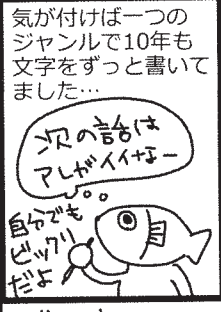 気が付けば一つの
ジャンルで10年も
文字をずっと書いて
ました…
次の話は
アレがイイなー
自分でも
ビックリ
だよ